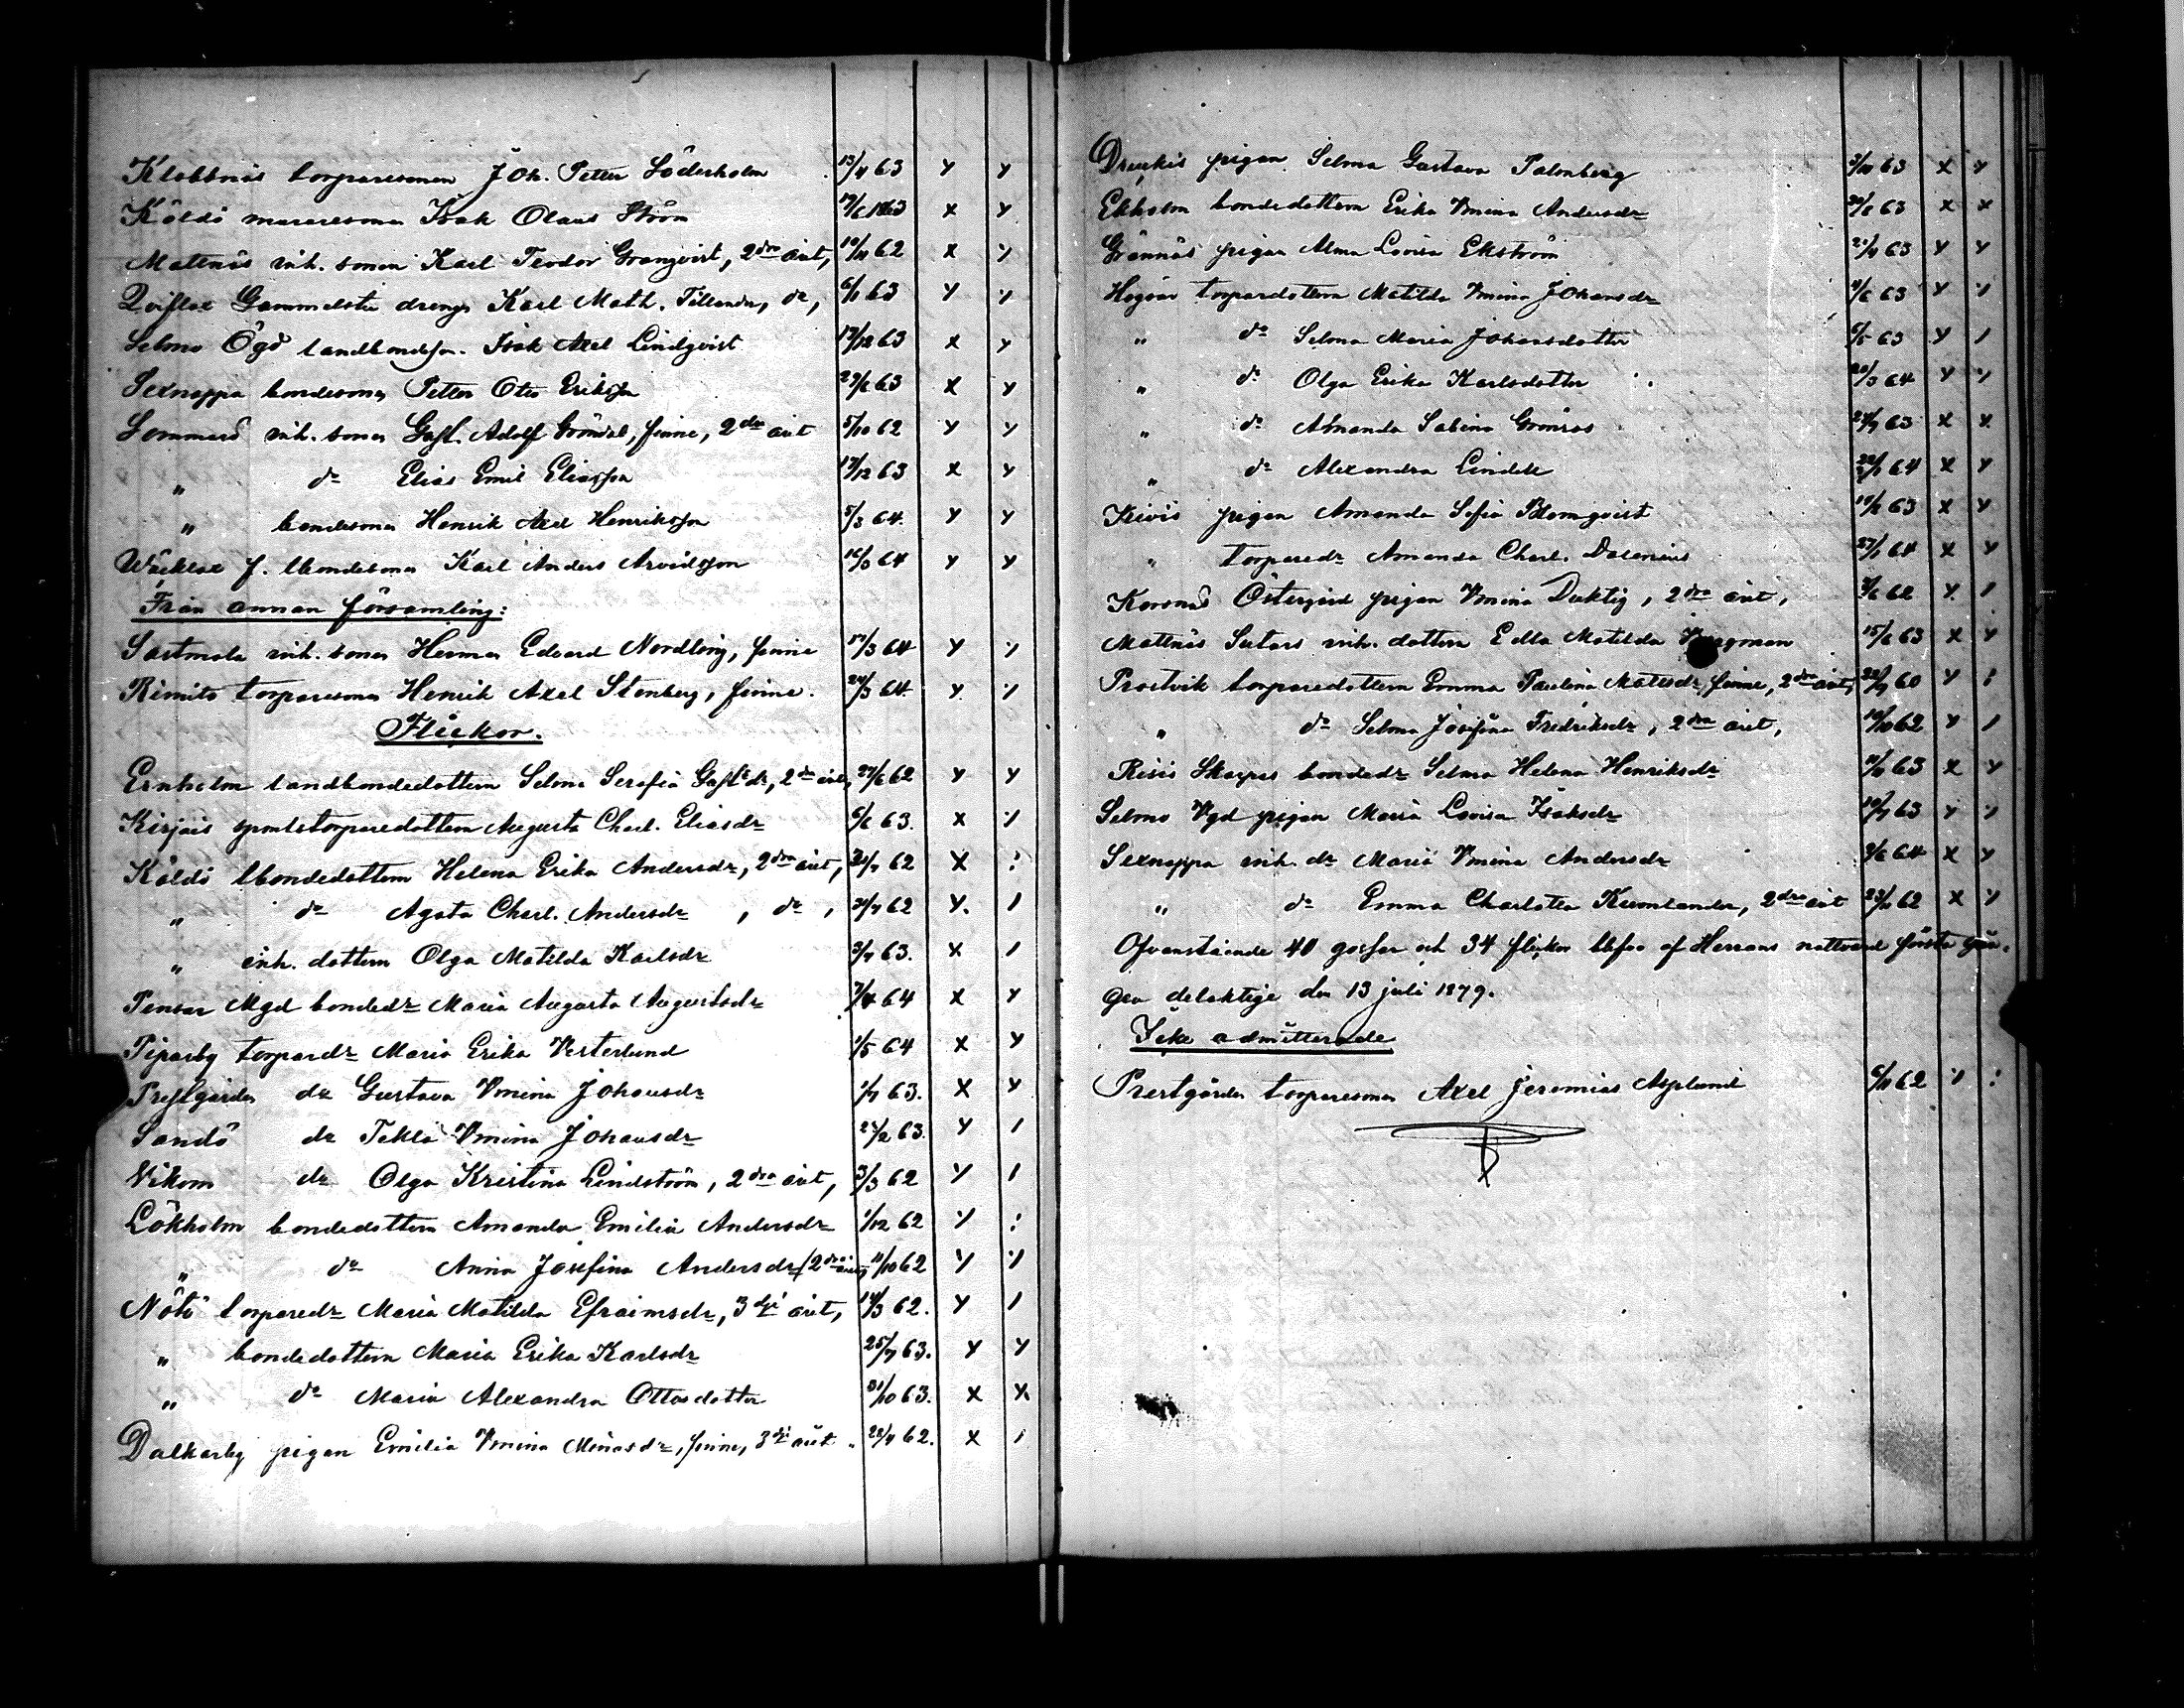 Klobbnäs torparesonen Joh. Petter Söderholm 13/4 63 Y Y
Käldö muraresonen Isak Olaus Ström 19/6 1863 X Y
Mattnäs inh. sonen Karl Teodor Granqvist, 2dra året, 10/11 62 X ·/
Qviflax Gammelstu dreng Karl Math. Tillander, do, 6/1 63 Y ·/
Selmo Ögd landbondeson. Isak Axel Lindqvist 19/12 63 X Y
Sexnappa bondesonen Petter Otto Eriksson 29/6 63 X Y
Sommarö inh. sonen Gust. Adolf Gröndal, finne, 2dra året 5/10 62 Y Y
" do Elias Emil Eliasson 17/12 63 X Y
" bondesonen Henrik Axel Henriksson 5/3 64. Y Y
f. lbondesonen Karl Anders Arvidsson 16/3 64 Y Y
Från annan församling:
Sastmola inh. sonen Herman Edvard Nordling, finne 17/3 64 Y ·/
Rimito torparesonen Henrik Axel Stenberg, finne. 24/3 64 Y ·/
Flickor.
Ernholm landbondedottern Selma Serafia Gustdr, 2dra året, 27/6 62 Y Y
Kirjais torparedottern Augusta Charl. Eliasdr 6/6 63. X ·/
Käldö lbondedottern Helena Erika Andersdr, 2dra året, 31/7 62 X :
" do Agata Charl. Andersdr, do, 31/7 62 Y. /
" inh. dottern Olga Matilda Karlsdr 3/7 63. X /
Pensar Mgd bondedr Maria Augusta Augustsdr 7/4 64 X Y
Piparby torparedr Maria Erika Vesterlund 1/5 64 X Y
Prestgården do Gustava Vmina Johansdr 1/7 63. X Y
Sandö do Tekla Vmina Johansdr 24/2 63. Y /
Vikom do Olga Kristina Lindström, 2dra året, 3/3 62 Y /
Lökholm bondedottern Amanda Emilia Andersdr 1/12 62 ·/ :
" do Anna Josefina Andersdr, 2dra året, 11/10 62 Y ·/
Nötö torparedr Maria Matilda Efraimsdr, 3dje året, 14/3 62. Y /
" bondedottern Maria Erika Karlsdr 25/7 63. Y Y
" do Maria Alexandra Ottosdotter 31/10 63. X X
Dalkarby pigan Emilia Vmina Minasdr, finne, 3dje året 22/4 62. X /
Druckis pigan Selma Gustava Palmberg 3/10 63 X Y
Ekholm bondedottern Erika Vmina Andersdr 30/6 63 X X
Grännäs pigan Alma Lovisa Ekström 21/4 63 Y Y
Högsar torparedottern Matilda Vmina Johansdr 4/6 63 Y ·/
" do Selma Maria Johansdotter 6/5 63 Y /
" do Olga Erika Karlsdotter 20/3 64 Y ·/
" do Amanda Sabina Grönros 24/7 63 X Y
" do Alexandra Lindell 22/1 64 X Y
Krivis pigan Amanda Sofia Blomqvist 10/6 63 X Y
" torparedr Amanda Charl. Dalenius 27/1 64 X Y
Korsnäs Östergård pigan Vmina Duktig, 2dra året, 3/6 62 Y /
Mattnäs Sutars inh. dottern Edla Matilda Bergman 15/6 63 X Y
Prostvik torparedottern Emma Paulina Matsdr, finne, 2dra året, 22/7 60 Y :
" do Selma Josefina Fredriksdr, 2dra året, 10/10 62 Y /
Risis Skarpas bondedr Selma Helena Henriksdr 11/11 63 X Y
Selmo Vgd pigan Maria Lovisa Isaksdr 10/7 63 Y ·/
Sexnappa inh. dr Maria Vmina Andersdr 3/6 64 X Y
" do Emma Charlotta Kumlander, 2dra året 23/11 62 X ·/
Ofvanstående 40 gossar och 34 flickor blefvo af Herrans nattvard första gån-
gen delaktige den 13 juli 1879.
Icke admitterade
Prestgården torparesonen Axel Jeremias Asplund 6/11 62 ·/ :